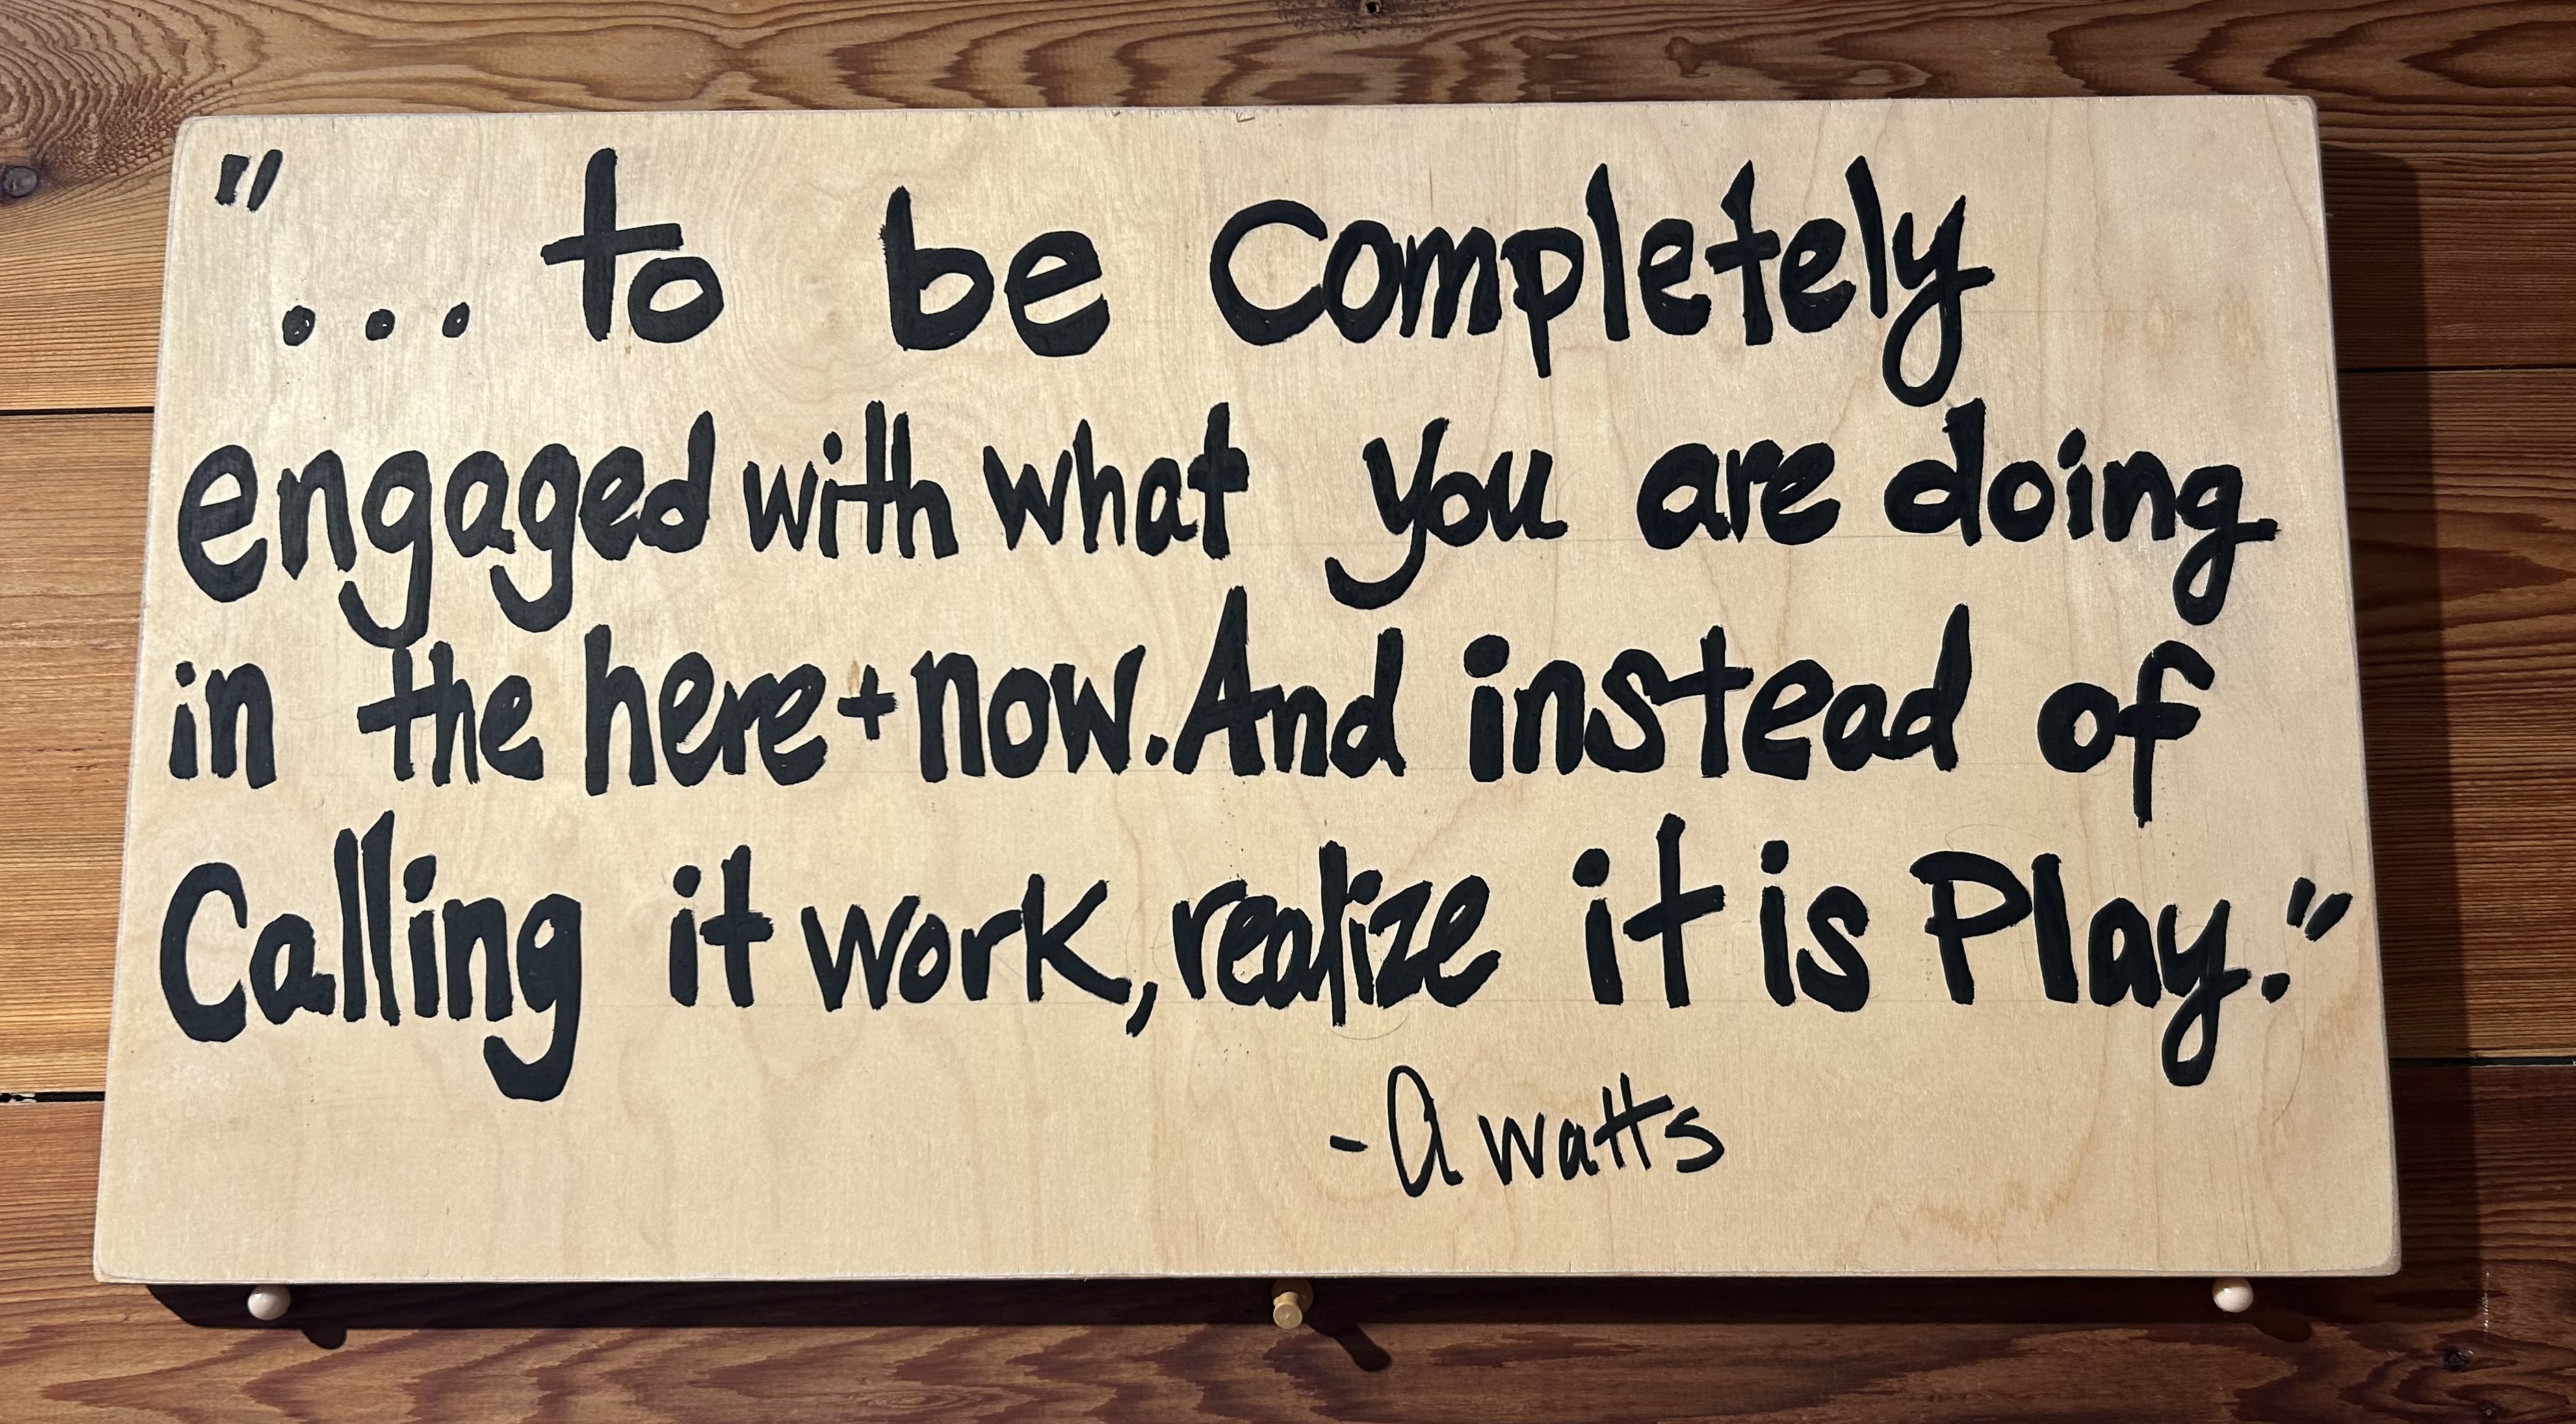 "... to be Completely
engaged with what you are doing
in the here + now. And instead of
Calling it work, realize it is Play."
- A watts